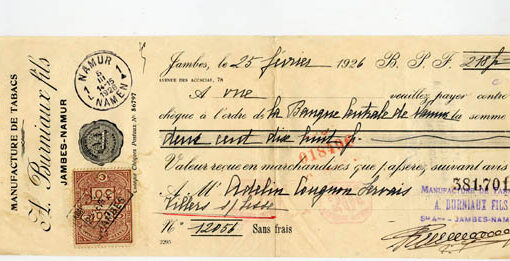 MANUFACTURE DE TABACS
A. Burniaux fils
JAMBES-NAMUR
NAMUR 1
1926
1 NAMEN
Compte Chèques Postaux Nº 84797
Jambes, le 25 février 1926 B. P. F. 218 f
AVENUE DES ACACIAS, 78
A vue veuillez payer contre
chèque à l'ordre de la Banque Centrale de Namur la somme
deux cent dix huit f.
Valeur reçue en marchandises que passerez suivant avis
A Mr Adelin Congnon Servais
Villers s/ Lesse
Nº 12056 Sans frais
2295
381.701
MANUFACTURE DE TA
A. BURNIAUX FILS
JAMBES-NAM